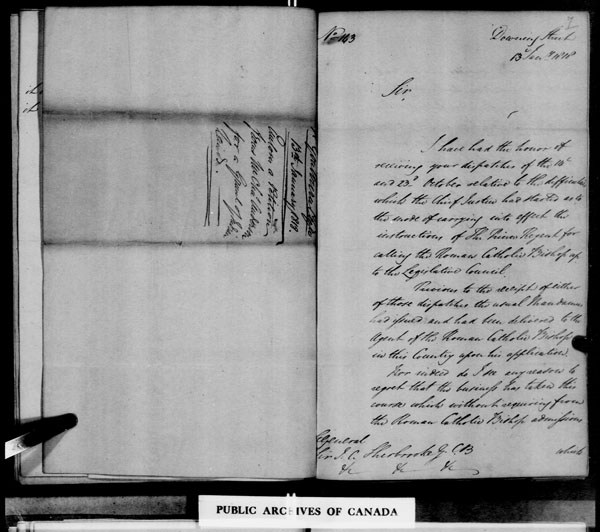 No 143
Downing Street
13 Jany 1818
Sir,
I have had the honor of
receiving your dispatches of the
and 23d October relative to the difficulties
which the Chief Justice had started as to
the mode of carrying into effect the
instructions of The Prince Regent for
calling the Roman Catholic Bishop up
to the Legislative Council.
Previous to the receipt of either
of those dispatches the usual Mandamus
had issued and had been delivered to the
Agent of the Roman Catholic Bishop
in this Country upon his application.
Nor indeed do I see any reason to
regret that the business has taken this
course which without requiring from
the Roman Catholic Bishop admissions
which
General
Sir J. C. Sherbrooke G.C.B
&c &c &c
13th January 1818.
for a Grant of
Land.
PUBLIC ARCHIVES OF CANADA